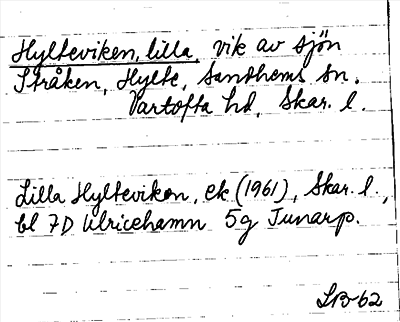 Hylteviken, lilla, vik av sjön
Stråken, Hylte, Sandhems sn.
Vartofta hd, Skar. l.
Lilla Hylteviken, ek (1961), Skar. l.,
bl 7D Ulricehamn 5g Tunarp.
LB-62